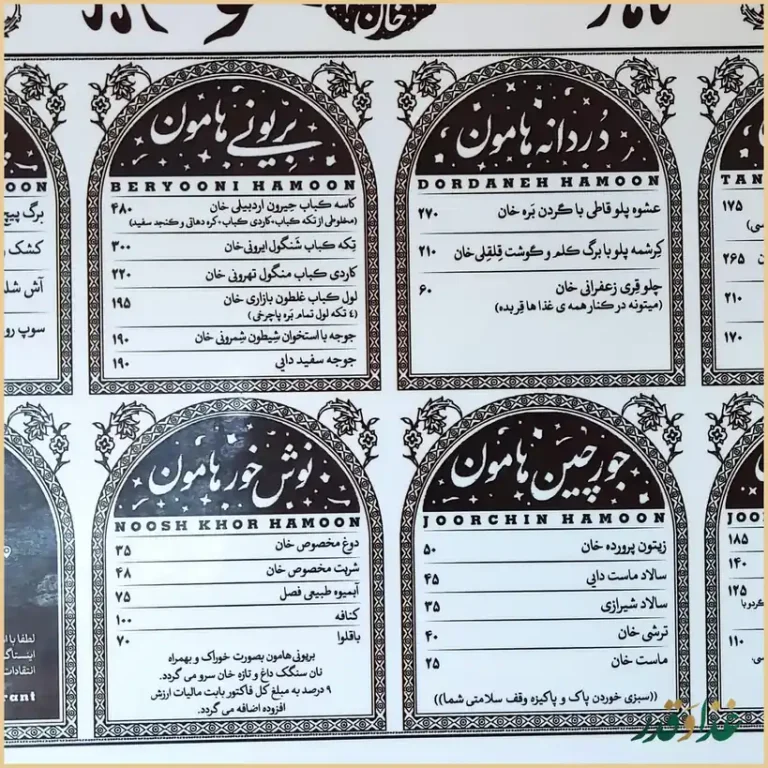 خان
دُردانه هامون
DORDANEH HAMOON
عشوه پلو قاطی با گردن بَره خان ۲۷۰
کِرشمه پلو با برگ کلم و گوشت قِلقلی خان ۲۱۰
چلو قِری زعفرانی خان ۶۰
(میتونه در کنار همه ی غذا ها قِر بده)
بریونی هامون
BERYOONI HAMOON
کاسه کباب حِیرون اردبیلی خان ۴۸۰
(مخلوطی از تکه کباب، کاردی کباب، کره دهاتی و کنجد سفید)
تِکه کباب شَنگول ایرونی خان ۳۰۰
کاردی کباب منگول تهرونی خان ۲۲۰
لول کباب غلطون بازاری خان ۱۹۵
(۴ تکه لول تمام بَره پاچرخی)
جوجه با استخوان شِیطون شِمرونی خان ۱۹۰
جوجه سفید دایی ۱۹۰
TAN
۱۷۵
۲۶۵
۲۱۰
۱۷۰
OON
برگ پیچ
کشک
آش شله
سوپ رو
جورچین هامون
JOORCHIN HAMOON
زیتون پرورده خان ۵۰
سالاد ماست دایی ۴۵
سالاد شیرازی ۳۵
ترشی خان ۴۰
ماست خان ۲۵
((سبزی خوردن پاک و پاکیزه وقف سلامتی شما))
نوش خور هامون
NOOSH KHOR HAMOON
دوغ مخصوص خان ۳۵
شربت مخصوص خان ۴۸
آبمیوه طبیعی فصل ۷۵
کنافه ۱۰۰
باقلوا ۷۰
بریونی هامون بصورت خوراک و بهمراه
نان سنگک داغ و تازه خان سرو می گردد.
۹ درصد به مبلغ کل فاکتور بابت مالیات ارزش
افزوده اضافه می گردد.
JOO
۱۸۵
۱۴۰
۱۲۵
گردو با
۱۱۰
لطفا با
اینستاگ
انتقادات
rant
غذا و قدر